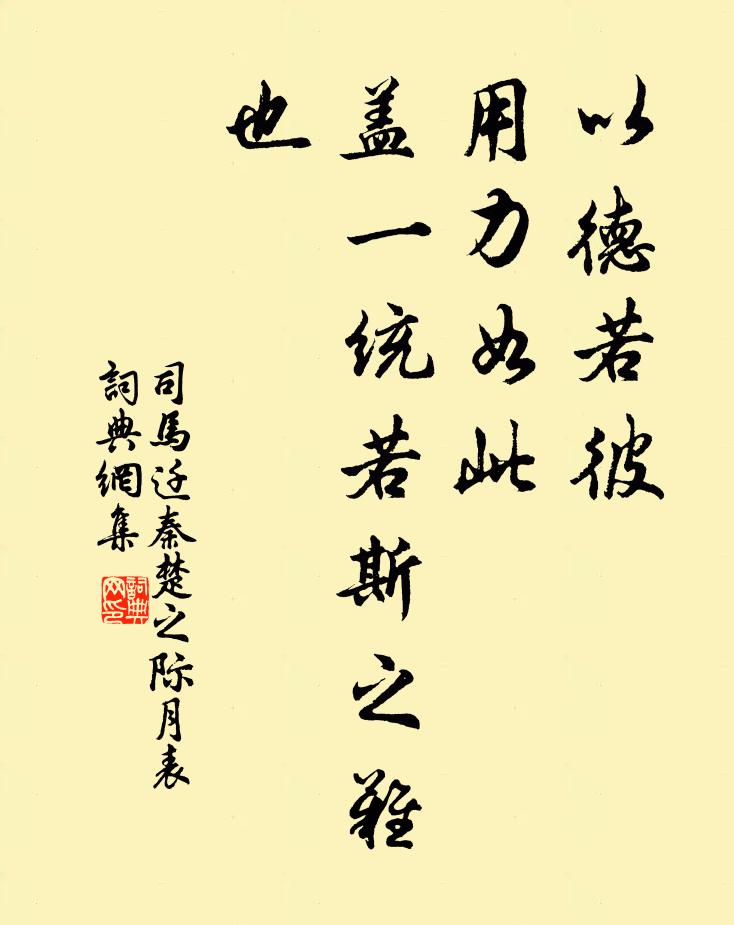 以德若彼
用力如此
盖一统若斯之難
也
司馬迁秦楚之际月表
詞典網集
詞典網印